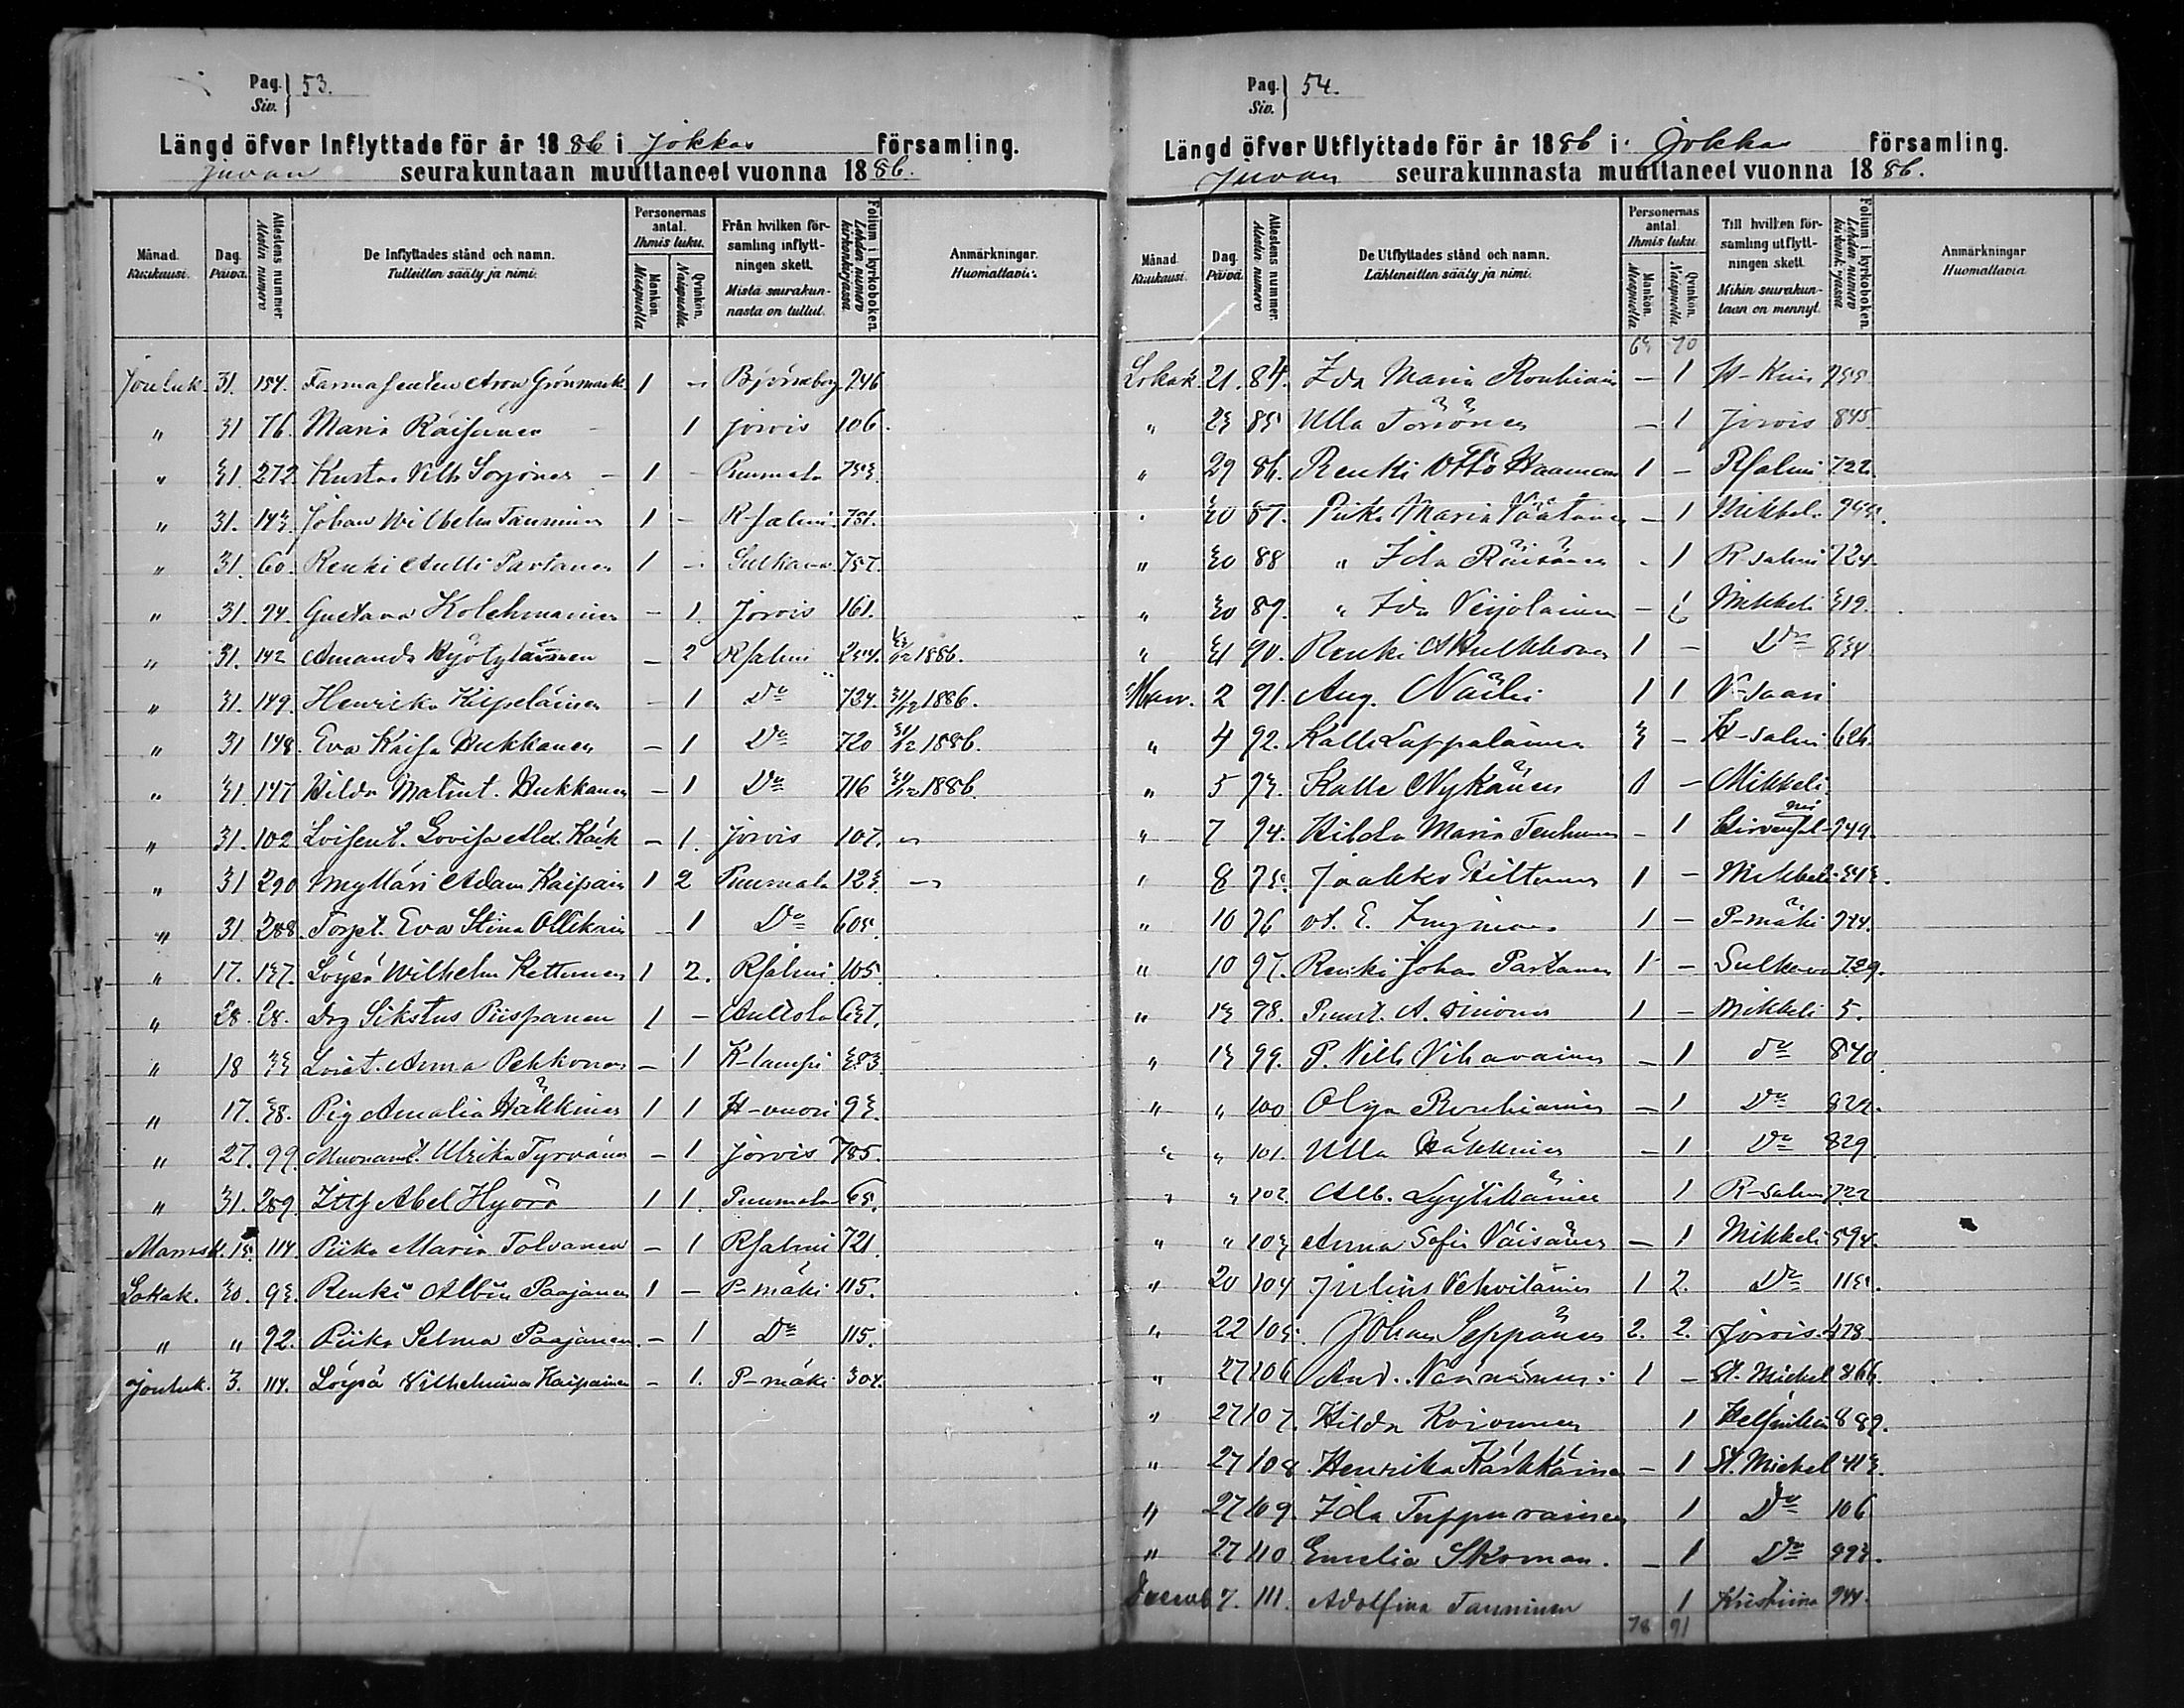 Pag. Siv. } 53.
Längd öfver Inflyttade för år 1886 i Jokkas församling.
Juvan seurakuntaan muuttaneet vuonna 1886.
Månad. Kuukausi. Dag. Päivä. Attestens nummer. Alestin numero De Inflyttades stånd och namn. Tulleitten sääty ja nimi. Personernas antal. Ihmis luku. Mankön. Miespuolta Qvinkön. Naispuolta. Från hvilken församling inflyttningen skett. Mistä seurakunnasta on tullut. Folium i kyrkoboken. Lehden numero kirkonkirjassa Anmärkningar. Huomattavia.
Jouluk. 31. 154. Aron Grönmark 1 - Björneborg 246
" 31 76. Maria Räisänen 1 Jorois 106.
" 31. 272 Kusta Vilh Sorjonen - 1 - Puumala 753.
" 31. 143. Johan Wilhelm Tanninen 1 - R-salmi 731.
" 31. 60. Renki Antti Partanen 1 - Sulkava 757.
" 31. 94. Gustava Kolehmainen - 1. Jorois 161.
" 31. 142 Amanda - 2 Rsalmi 254. 31/12 1886.
" 31. 149. Henrika Kilpeläinen - 1 Do 734. 31/12 1886.
" 31 148. Eva Kaisa Hukkanen - 1 Do 720 31/12 1886.
" 31. 147 Hilda Matint. Hukkanen - 1 Do 716 31/12 1886.
" 31. 102 Loisent. Lovisa Alex. - 1. Jorois 107.
" 31 290 Mylläri Adam Kaipain 1 2 Puumala 123.
" 31. 288. Torpt. Eva Stina Ollikain 1 Do 605.
" 17. 137. Löysä Wilhelm Kettunen 1 2. Rsalmi. 105.
" 28. 28. Drg Sikstus Piispanen 1 - Anttola 637.
" 18 33 Loist. Anna Pekkonen - 1 K-lampi 383.
" 17. 38. Pig Amalia Häkkinen 1 1 H-vuori 93.
" 27. 99. Muonam. Ulrika Tyrväinen - 1. Jorois 785.
" 31. 289. Abel Hyörö 1 1. Puumala 65.
Marrask. 15. 114. Piika Maria Tolvanen - 1 Rsalmi 721.
Lokak. 30. 93. Renki Albin Paajanen 1 - P-mäki 115.
" " 92. Piika Selma Paajanen. - 1 Do 115.
Jouluk. 3. 114. Löysä Vilhelmina Kaipainen - 1. P-mäki 304.
Pag. Siv. } 54.
Längd öfver Utflyttade för år 1886 i Jokkas församling.
Juvan seurakunnasta muuttaneet vuonna 1886.
Månad. Kuukausi. Dag. Päivä. Attestens nummer. Alestin numero De Utflyttades stånd och namn. Lähteneitten sääty ja nimi. Personernas antal. Ihmis luku. Mankön. Miespuolta Qvinkön. Naispuolta. Till hvilken församling utflyttningen skett. Mihin seurakuntaan on mennyt. Folium i kyrkoboken. Lehden numero kirkonkirjassa Anmärkningar Huomattavia
63 70
Lokak. 21. 84. Ida Maria Rouhiain - 1 755
" 23 85 Ulla Törönen - 1 Jorois 845
" 29 86. Renki Otto 1 - Rsalmi 722.
" 30 87. Piika Maria Väätänen - 1 Mikkeli 744.
" 30 88 " Ida Räisänen - 1 R-salmi 724.
" 30 89. " Ida Veijolainen - 1 Mikkeli 319.
" 31 90. Renki A Hulkkonen 1 - Do 834.
Marr. 2 91. Aug. 1 1 V-saari
" 4 92. Kalle Lappalainen 3 - H-salmi 626.
" 5 93. Kalle Nykänen 1 - Mikkeli
" 7 94. Hilda Maria Tenhunen - 1 Hirvensalmi 749.
" 8 95. Jaakko Hiltunen 1 - Mikkeli 343.
" 10 96 E. 1 - P-mäki 944.
" 10 97. Renki Johan Partanen 1 - Sulkava 729.
" 13 98. A. Simonen 1 - Mikkeli 5.
" 13 99. P. Vilh Vihavainen - 1 do 840
" " 100 Olga Rouhiainen - 1 Do 822.
" " 101. Ulla Häkkinen - 1 Do 829
" " 102. Alb. Lyytikäinen 1 R-salmi 722
" " 103 Anna Sofia Väisänen - 1 Mikkeli 594.
" 20 104 Julius Vehviläinen 1 2. Do 115.
" 22 105. Johan Seppänen 2. 2. Jorois. 478.
" 27 106 And. 1 - St. Michel 866.
" 27 107. Hilda Koivunen 1 889.
" 27 108. Henrika Kärkkäinen - 1 St. Michel 413.
" 27 109. Ida Tuppurainen 1 Do 106
" 27 110. Emelia Skoman. - 1 Do 893.
Decemb 7. 111. Adolfina Tanninen 1 Kristiina 944.
78 91